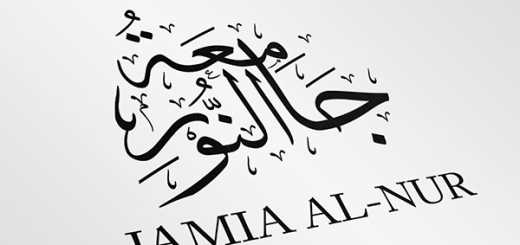 جَامِعَةُ النُّور
JAMIA AL-NUR